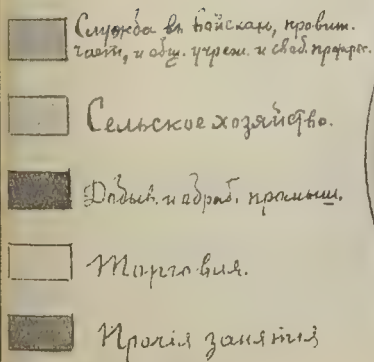 Служба въ войскахъ, правит.
части, и общ. учреж. и своб. професс.
Сельское хозяйство.
Добыв. и обраб. промыш.
Торговля.
Прочія занятія